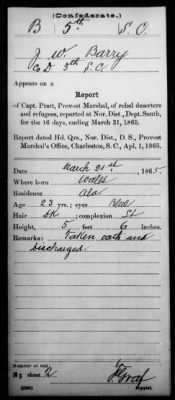 (Confederate.)
B 5th S.C.
J. W. Barry
Co D 5th S.C.
Appears on a
Report
of Capt. Pratt, Provost Marshal, of rebel deserters
and refugees, reported at Nor. Dist., Dept. South,
for the 16 days, ending March 31, 1865.
Report dated Hd. Qrs., Nor. Dist., D. S., Provost
Marshal's Office, Charleston, S. C., Apl. 1, 1865.
Date March 21st, 1865.
Where born Wales
Residence Ala
Age 23 yrs.; eyes Blue
Hair Dk; complexion Lt
Height, 5 feet 6 inches.
Remarks: Taken oath and
Discharged
Number of roll:
sheet 2
Copyist.